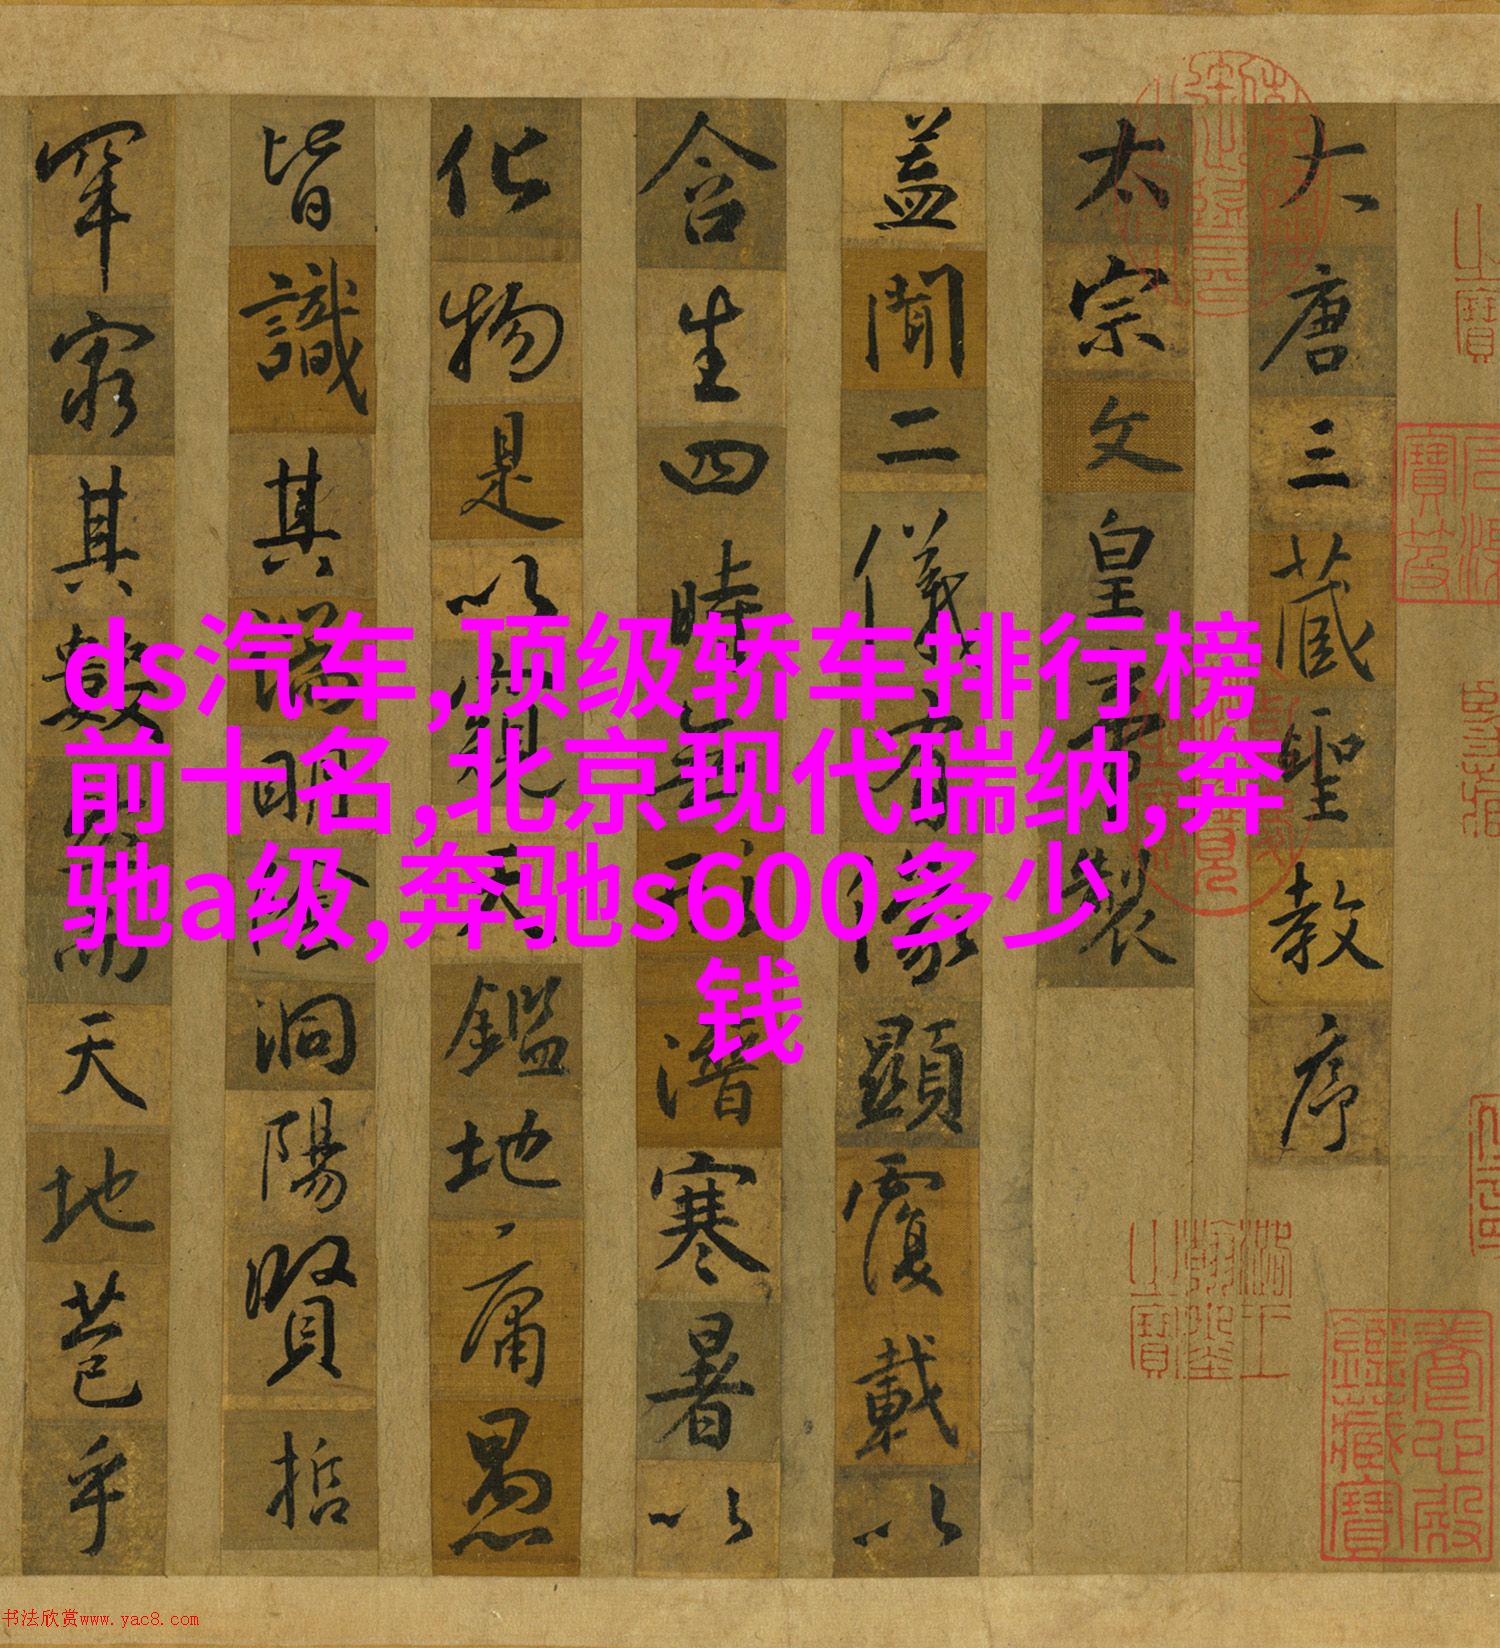 大唐三藏聖教序
太宗文皇帝製
蓋聞二儀有像顯覆載以
含生四時無形潛寒暑以
化物是以窺天鑑地庸愚
皆識其端明陰洞陽賢哲
罕窮其數然而天地苞乎
ds汽车,顶级轿车排行榜
前十名,北京现代瑞纳,奔
驰a级,奔驰s600多少
钱
书法欣赏www.yac8.com